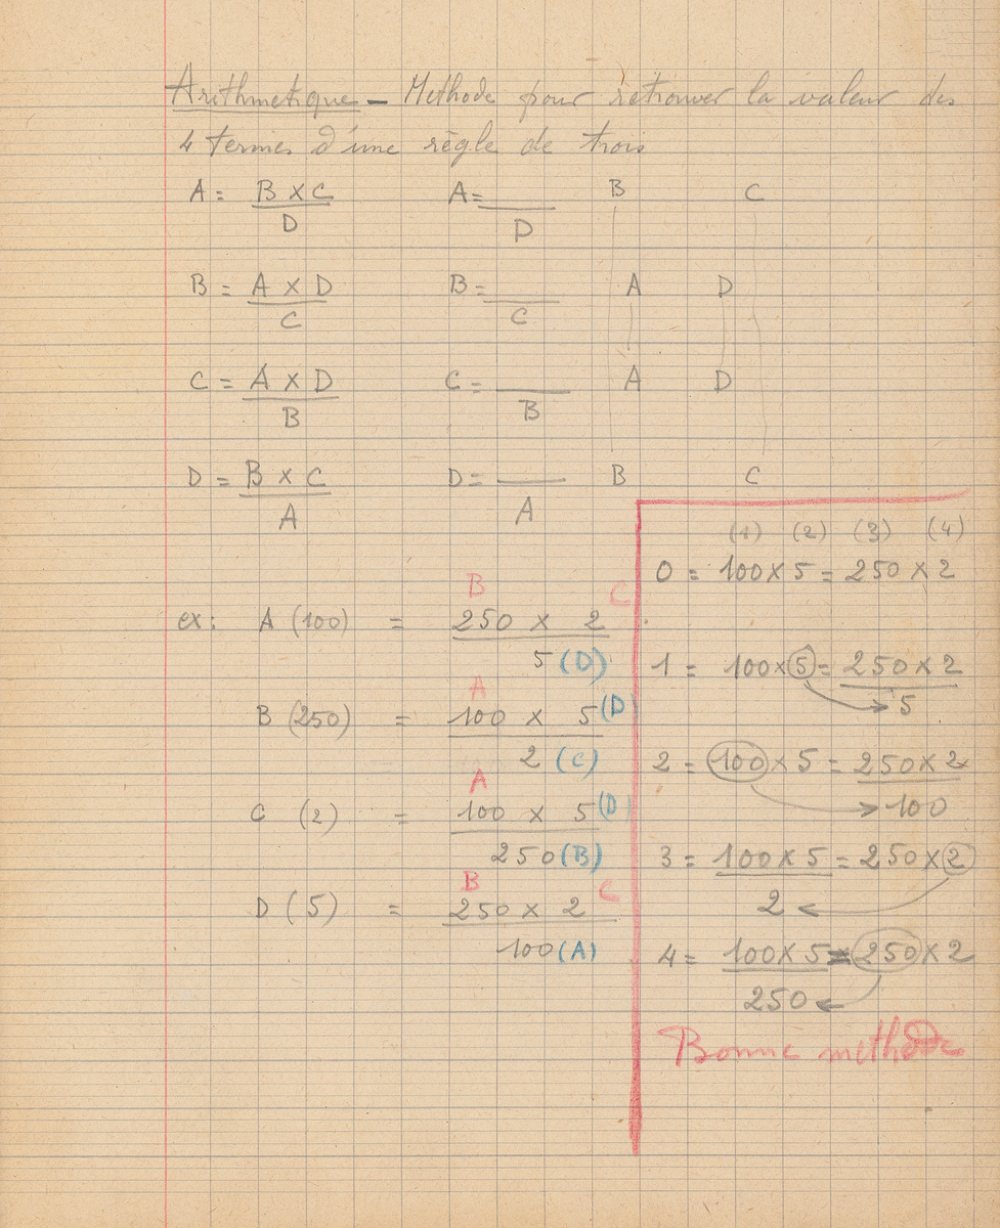 Arithmetique - Methode pour retrouver la valeur des
4 termes d'une règle de trois
A = B x C A = B C
D D
B = A x D B = A D
C C
C = A x D C = A D
B B
D = B x C D = B C
A A
B C
ex: A (100) = 250 x 2
5 (D)
A
B (250) = 100 x 5 (D
2 (C)
A
C (2) = 100 x 5 (D
250 (B)
B C
D (5) = 250 x 2
100 (A)
(1) (2) (3) (4)
0 = 100 x 5 = 250 x 2
1 = 100 x 5 = 250 x 2
5
2 = 100 x 5 = 250 x 2
100
3 = 100 x 5 = 250 x 2
2
4 = 100 x 5 = 250 x 2
250
Bonne methode